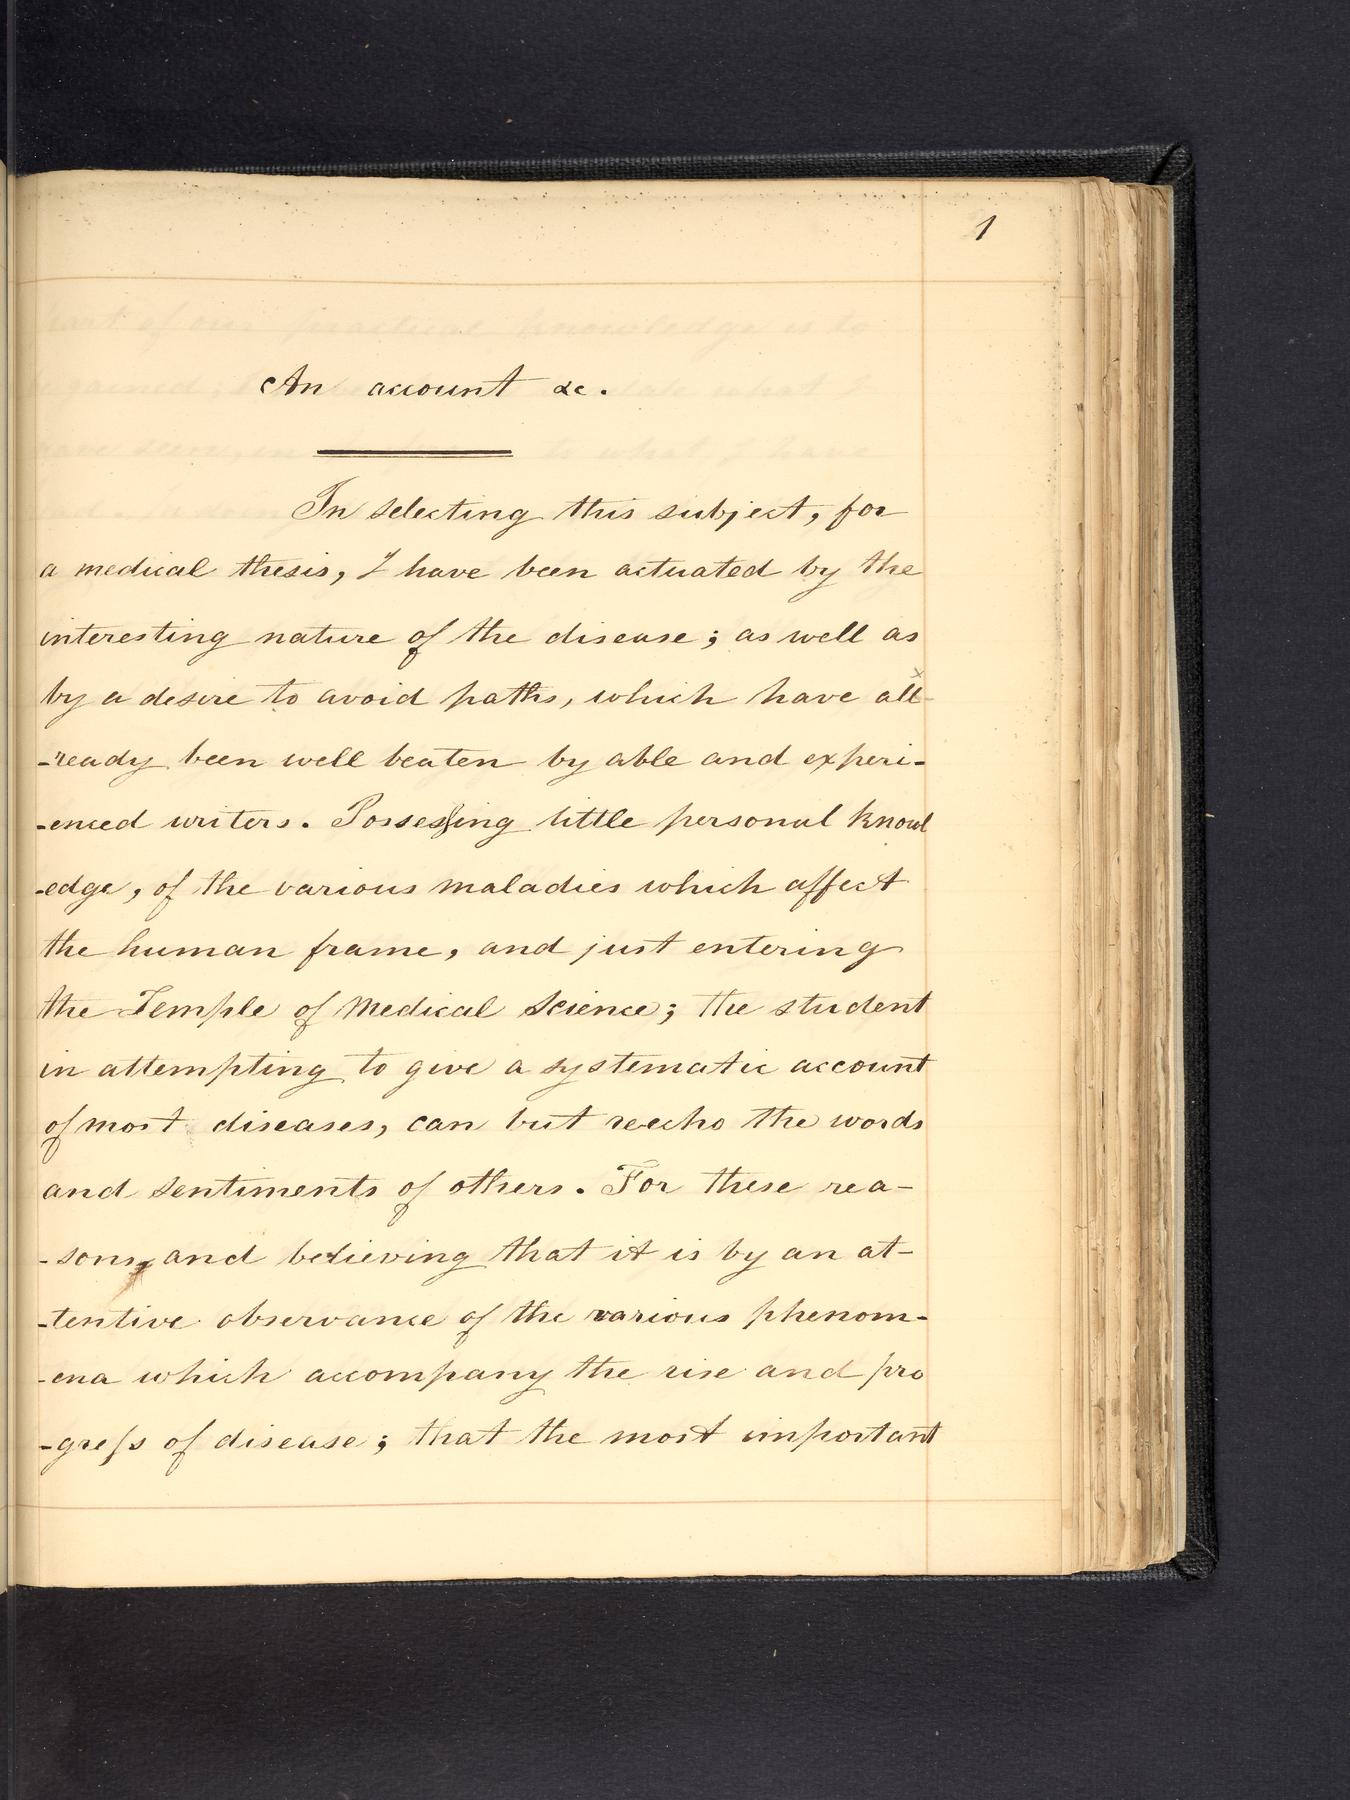 1
An account &c.
In selecting this subject, for
a medical thesis, I have been actuated by the
interesting nature of the disease; as well as
by a desire to avoid paths, which have all-
-ready been well beaten by able and experi-
-enced writers. Possessing little personal knowl
-edge, of the various maladies which affect
the human frame, and just entering
the Temple of Medical Science; the student
in attempting to give a systematic account
of most diseases, can but reecho the words
and sentiments of others. For these rea-
-sons, and believing that it is by an at-
-tentive observance of the various phenom-
-ena which accompany the rise and pro
-gress of disease; that the most important